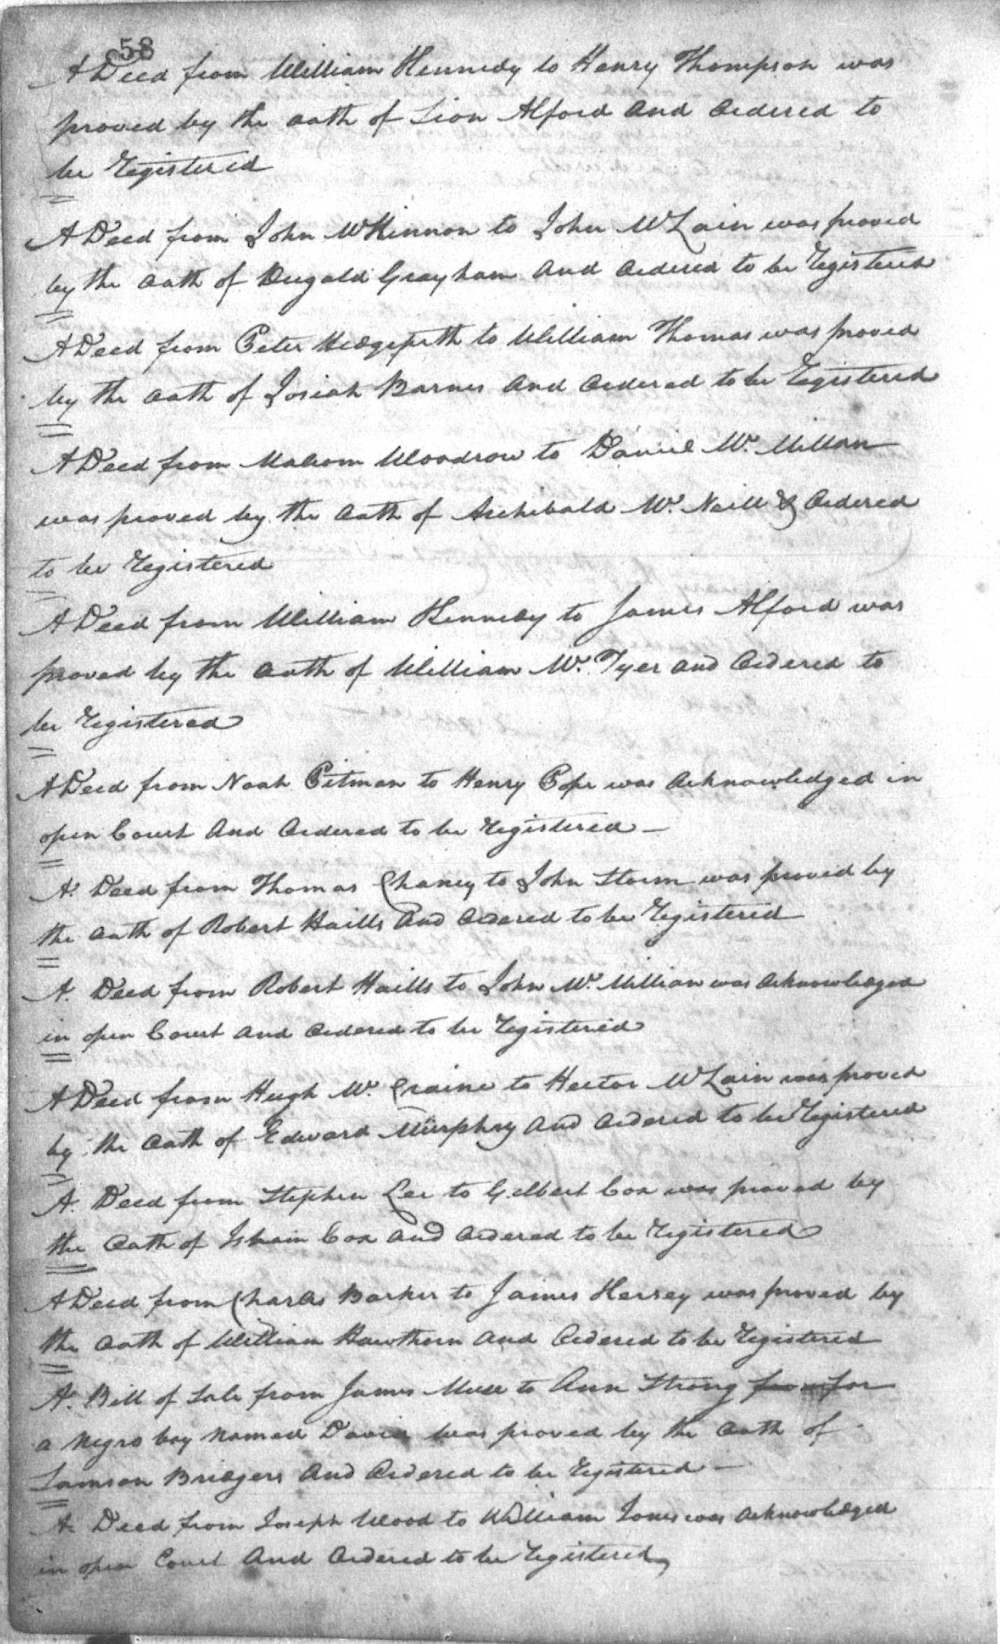 58
A Deed from William Kennedy to Henry Thompson was
proved by the oath of Sion Alford and Ordered to
be Registered
A Deed from John McKinnon to John McLain was proved
by the oath of Dugald Grayham and Ordered to be Registered
A Deed from Peter Hedgepeth to William Thomas was proved
by the oath of Josiah Barnes and Ordered to be Registered
A Deed from Malcom Woodrow to Daniel Mc. Millan
was proved by the oath of Archibald Mc. Neill & Ordered
to be Registered
A Deed from William Kennedy to James Alford was
proved by the oath of William Mc. Tyer and Ordered to
be Registered
A Deed from Noah Pitman to Henry Pope was Acknowledged in
open Court And Ordered to be Registered —
A Deed from Thomas Chaney to John Storm was proved by
the oath of Robert Haills and Ordered to be Registered
A Deed from Robert Haills to John Mc. Millian was Acknowledged
in open Court and Ordered to be Registered
A Deed from Hugh Mc. Craine to Hector McLain was proved
by the oath of Edward Murphey and Ordered to be Registered
A Deed from Stephen Lee to Gilbert Cox was proved by
the Oath of Isham Cox and Ordered to be Registered
A Deed from Charls Barker to James Hersey was proved by
the oath of William Hawthorn and Ordered to be Registered
A Bill of Sale from James Muse to Ann Strong for
a Negro boy Named David was proved by the oath of
Samson Bridgers And Ordered to be Registered —
A Deed from Joseph Wood to William Jones was Acknowledged
in open Court And Ordered to be Registered